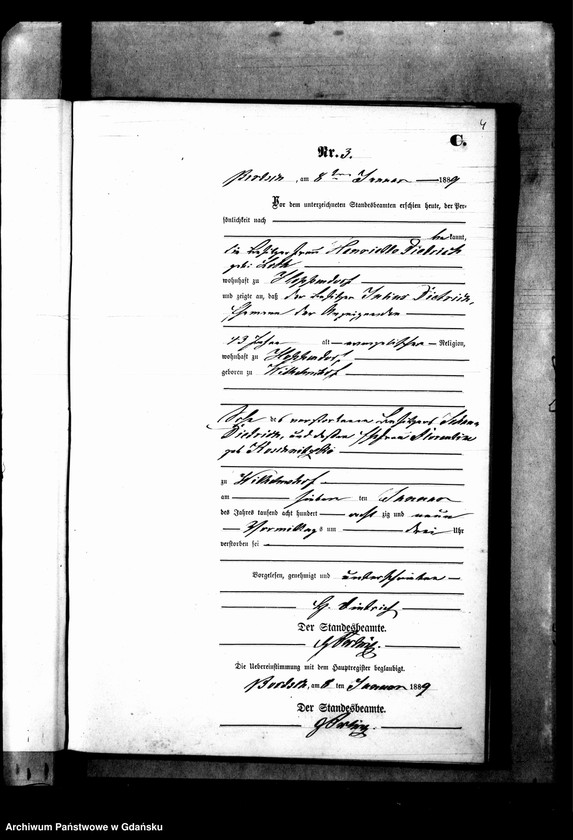 4
C.
Nr. 3.
am 8ten Januar 1889
Vor dem unterzeichneten Standesbeamten erschien heute, der Per-
sönlichkeit nach
bekannt,
die Besitzerfrau Henriette Dietrich
geb.
wohnhaft zu Hoppendorf
und zeigte an, daß der Besitzer Julius Dietrich,
Ehemann der Anzeigenden
43 Jahre alt evangelischer Religion,
wohnhaft zu Hoppendorf
geboren zu Wilhelmshof
Sohn des verstorbenen Besitzers
Dietrich, und dessen Ehefrau Florentine
geb.
zu Wilhelmshof
am sieben ten Januar
des Jahres tausend acht hundert acht zig und neun
Vormittags um drei Uhr
verstorben sei
Vorgelesen, genehmigt und unterschrieben
H. Dietrich
Der Standesbeamte.
Die Uebereinstimmung mit dem Hauptregister beglaubigt.
am 8 ten Januar 1889
Der Standesbeamte.
Archiwum Państwowe w Gdańsku